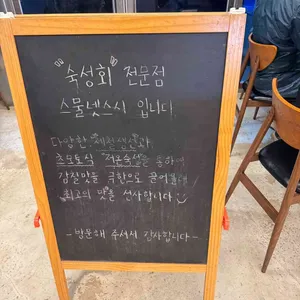 "숙성회" 전문점
스물넷스시 입니다
다양한 제철생선과
초모토식 저온숙성을 통하여
감칠맛을 극한으로 끌어올려
최고의 맛을 선사합니다
- 방문해 주셔서 감사합니다 -